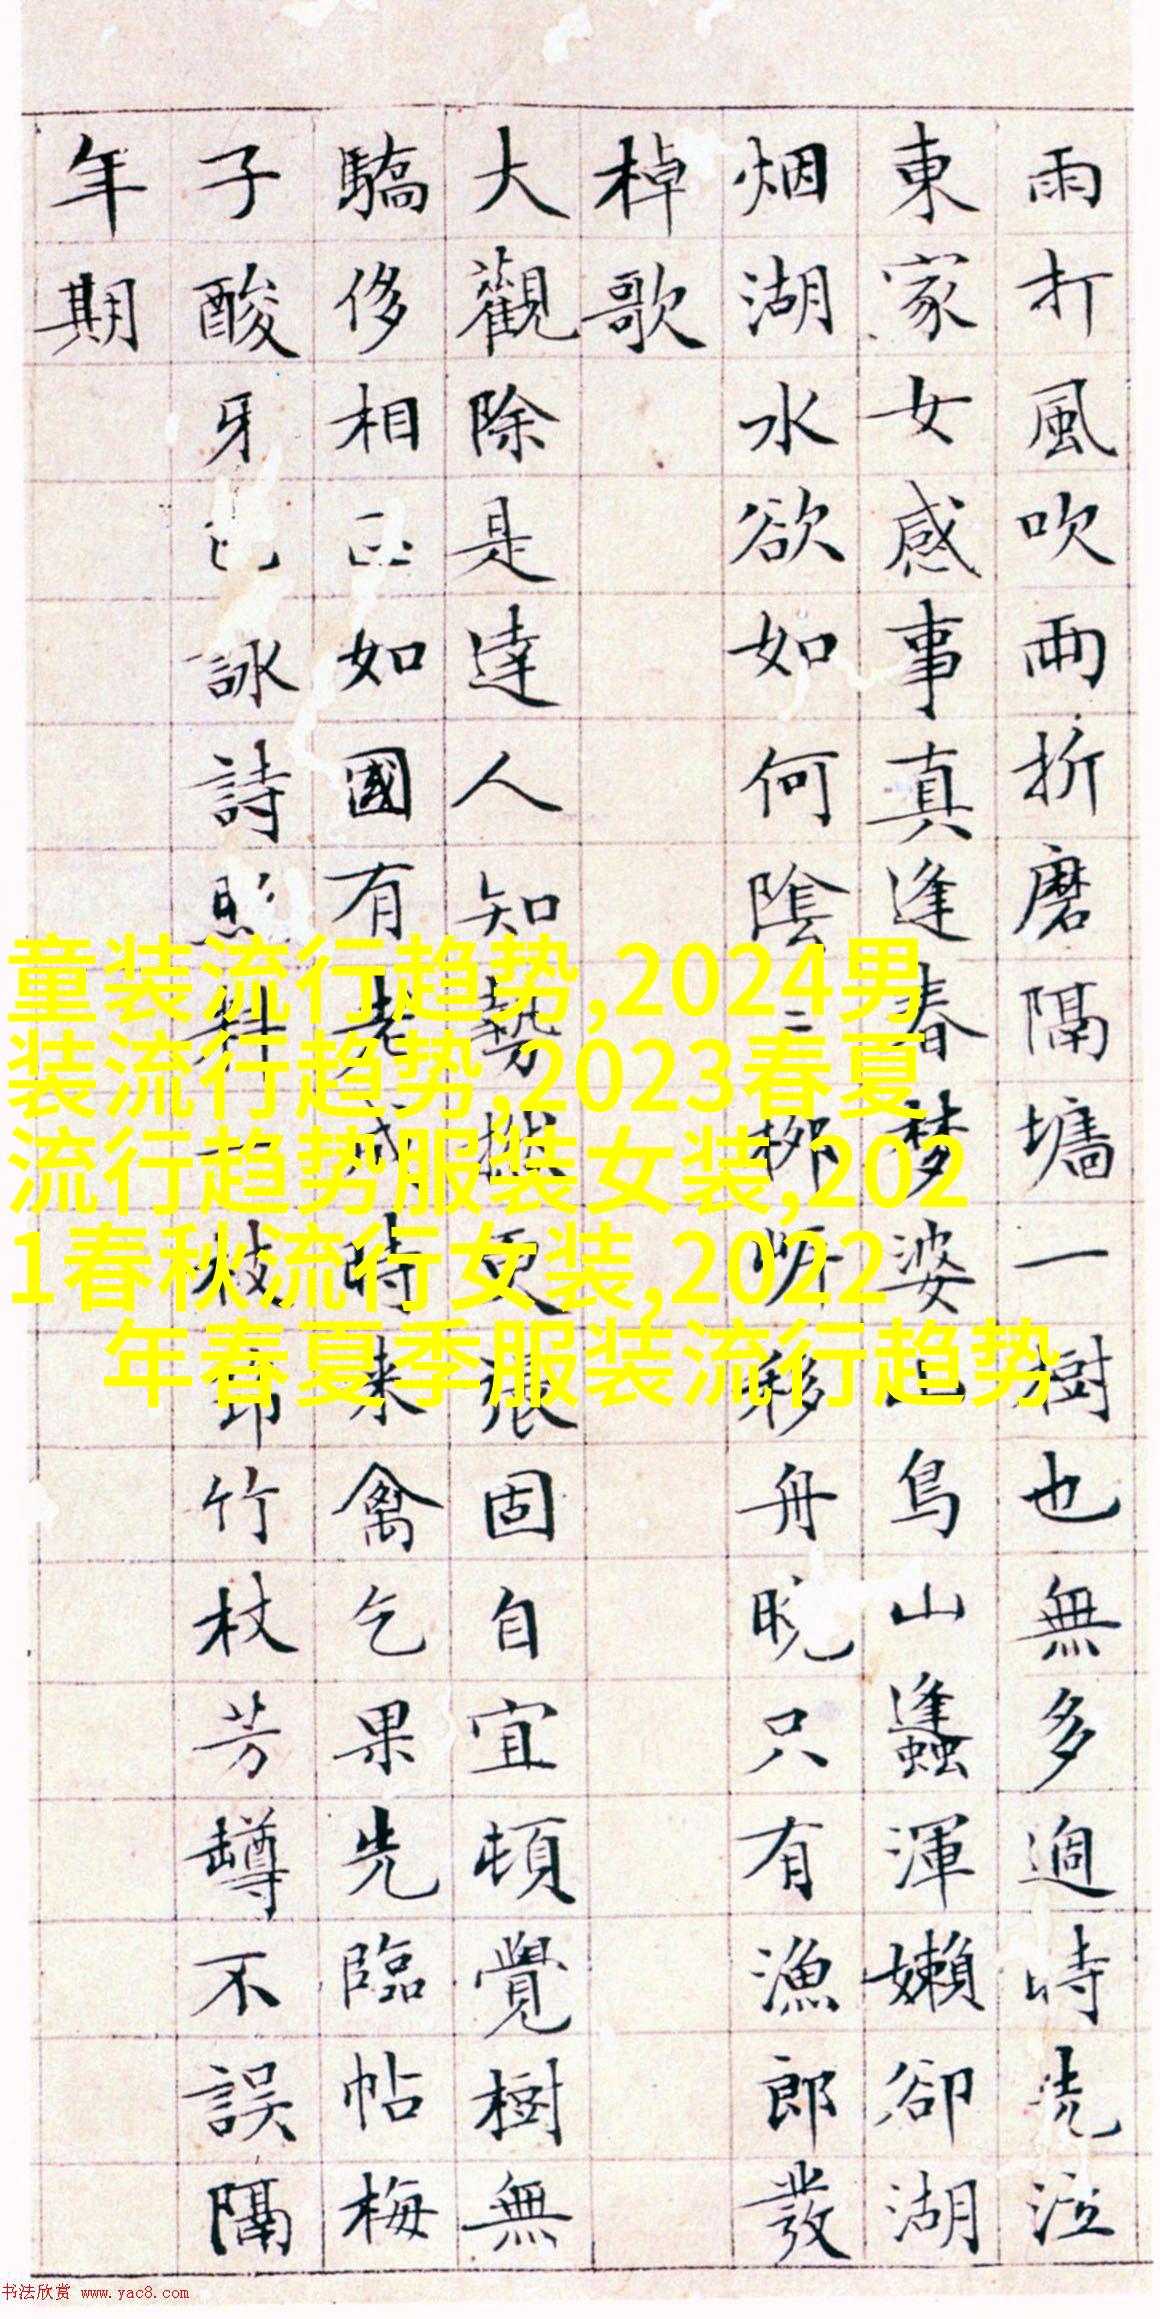 雨打風吹雨折磨隔墻一樹也無多過時洗泣
東家女感事真逢春夢婆山鳥山蠭渾嬾卻湖
烟湖水欲如何陰二柳下移舟晚只有漁郎發
棹歌
大觀除是達人知勢撚更張固自宜頓覺樹無
驕侈相如國有老成時來禽乞果先臨帖梅
子酸牙詠詩照料一枝卬竹杖芳罇不誤隔
年期
童装流行趋势,2024男
装流行趋势,2023春夏
流行趋势服装女装,202
1春秋流行女装,2022
年春夏季服装流行趋势
书法欣赏 www.yac8.com